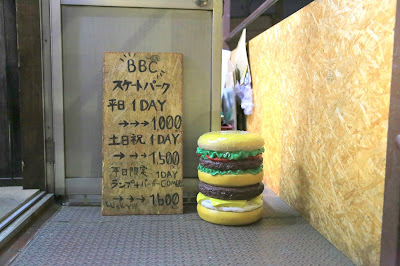 BBC
スケートパーク
平日 1DAY
→→→1,000
土日祝 1DAY
→→→1,500
平日限定 1DAY
ランプ+バーガーCOMBO
→→→1,600